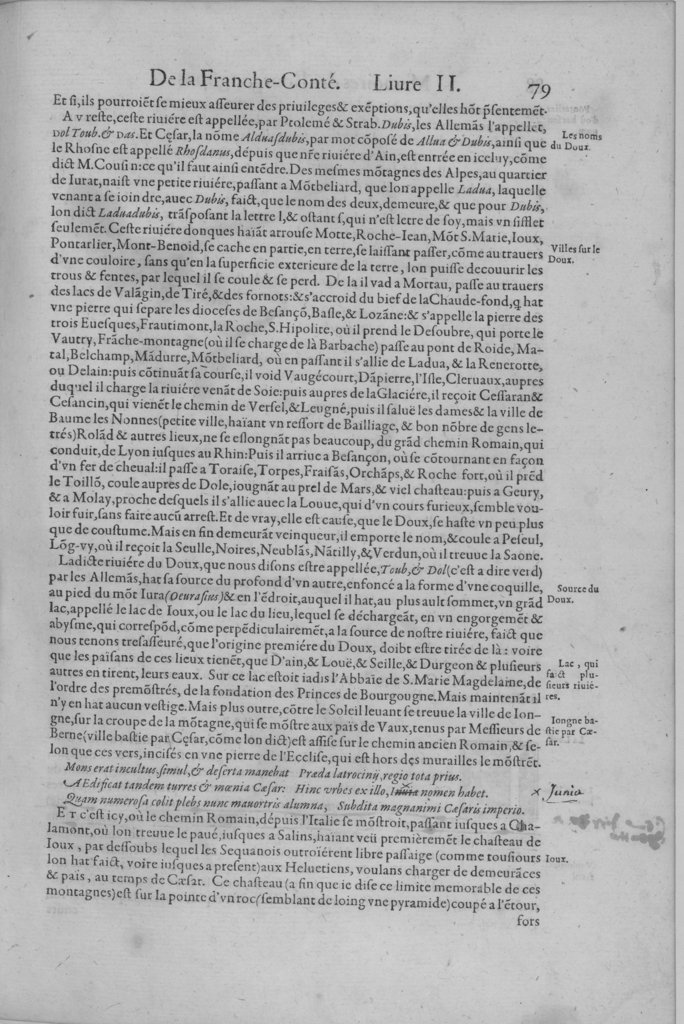 De la Franche-Conté. Liure II. 79
Et ſi, ils pourroiẽt ſe mieux aſſeurer des priuileges & exẽptions, qu'elles hõt p̃ſentemẽt.
A v reſte, ceſte riuiére eſt appellée, par Ptolemé & Strab. Dubis, les Allemãs l'appellẽt,
Dol Toub. & Das. Et Ceſar, la nõme Alduaſdubis, par mot cõpoſé de Allua & Dubis, ainſi que
Les noms
du Doux.
le Rhoſne eſt appellé Rhoſdanus, dépuis que nr̃e riuiére d'Ain, eſt entrée en iceluy, cõme
dict M. Couſin: ce qu'il faut ainſi entẽdre. Des meſmes mõtagnes des Alpes, au quartier
de Iurat, naiſt vne petite riuiére, paſſant a Mõtbeliard, que lon appelle Ladua, laquelle
venant a ſe ioindre, auec Dubis, faict, que le nom des deux, demeure, & que pour Dubis,
lon dict Laduadubis, trãſpoſant la lettre l, & oſtant ſ, qui n'eſt letre de ſoy, mais vn ſifflet
ſeulemẽt. Ceſte riuiére donques haïãt arrouſe Motte, Roche-Iean, Mõt S. Marie, Ioux,
Pontarlier, Mont-Benoid, ſe cache en partie, en terre, ſe laiſſant paſſer, cõme au trauers
Villes ſur le
Doux.
d'vne couloire, ſans qu'en la ſuperficie exterieure de la terre, lon puiſſe decouurir les
trous & fentes, par lequel il ſe coule & ſe perd. De la il vad a Mortau, paſſe au trauers
des lacs de Valãgin, de Tiré, & des fornots: & s'accroid du bief de la Chaude-fond, q hat
vne pierre qui ſepare les dioceſes de Beſançõ, Baſle, & Lozãne: & s'appelle la pierre des
trois Eueſques, Frautimont, la Roche, S. Hipolite, où il prend le Deſoubre, qui porte le
Vautry, Frãche-montagne (où il ſe charge de là Barbache) paſſe au pont de Roide, Ma-
tal, Belchamp, Mãdurre, Mõtbeliard, où en paſſant il s'allie de Ladua, & la Renerotte,
ou Delain: puis cõtinuãt ſa courſe, il void Vaugécourt, Dãpierre, l'Iſle, Cleruaux, aupres
duquel il charge la riuiére venãt de Soie: puis aupres de la Glaciére, il reçoit Ceſſaran &
Ceſancin, qui vienẽt le chemin de Verſel, & Leugné, puis il ſaluë les dames & la ville de
Baume les Nonnes (petite ville, haïant vn reſſort de Bailliage, & bon nõbre de gens le-
trés) Rolãd & autres lieux, ne ſe eſlongnãt pas beaucoup, du grãd chemin Romain, qui
conduit, de Lyon iuſques au Rhin: Puis il arriue a Beſançon, où ſe cõtournant en façon
d'vn fer de cheual: il paſſe a Toraiſe, Torpes, Fraiſãs, Orchãps, & Roche fort, où il prẽd
le Toillõ, coule aupres de Dole, iougnãt au prel de Mars, & viel chaſteau: puis a Geury,
& a Molay, proche deſquels il s'allie auec la Louue, qui d'vn cours furieux, ſemble vou-
loir fuir, ſans faire aucũ arreſt. Et de vray, elle eſt cauſe, que le Doux, ſe haſte vn peu plus
que de couſtume. Mais en fin demeurãt veinqueur, il emporte le nom, & coule a Peſeul,
Lõg-vy, où il reçoit la Seulle, Noires, Neublãs, Nãtilly, & Verdun, où il treuue la Saone.
Ladicte riuiére du Doux, que nous diſons eſtre appellée, Toub, & Dol (c'eſt a dire verd)
par les Allemãs, hat ſa ſource du profond d'vn autre, enfoncé a la forme d'vne coquille,
Source du
Doux.
au pied du mõt Iura (Oeuraſius) & en l'ẽdroit, auquel il hat, au plus ault ſommet, vn grãd
lac, appellé le lac de Ioux, ou le lac du lieu, lequel ſe déchargeãt, en vn engorgemẽt &
abyſme, qui correſpõd, cõme perpẽdiculairemẽt, a la ſource de noſtre riuiére, faict que
nous tenons treſaſſeuré, que l'origine premiére du Doux, doibt eſtre tirée de là: voire
que les païſans de ces lieux tienẽt, que D'ain, & Louë, & Seille, & Durgeon & pluſieurs
Lac, qui
faict plu-
ſieurs riuié-
res.
autres en tirent, leurs eaux. Sur ce lac eſtoit iadis l'Abbaïe de S. Marie Magdelaine, de
l'ordre des premõſtrés, de la fondation des Princes de Bourgougne. Mais maintenãt il
n'y en hat aucun veſtige. Mais plus outre, cõtre le Soleil leuant ſe treuue la ville de Ion-
gne, ſur la croupe de la mõtagne, qui ſe mõſtre aux païs de Vaux, tenus par Meſſieurs de
Iongne ba-
ſtie par Cæ-
ſar.
Berne (ville baſtie par Ceſar, cõme lon dict) eſt aſſiſe ſur le chemin ancien Romain, & ſe-
lon que ces vers, inciſés en vne pierre de l'Eccliſe, qui eſt hors des murailles le mõſtrẽt.
Mons erat incultus. ſimul, & deſerta manebat Præda latrocinij, regio tota prius.
AEdificat tandem turres & mœnia Cæſar: Hinc vrbes ex illo, nomen habet.
× Junia
Quam numeroſa colit plebs nunc mauortris alumna, Subdita magnanimi Cæſaris imperio.
Et c'eſt icy, où le chemin Romain, dépuis l'Italie ſe mõſtroit, paſſant iuſques a Cha-
lamont, où lon treuue le paué, iuſques a Salins, haïant veü premièremẽt le chaſteau de
Ioux, par deſſoubs lequel les Sequanois outroiérent libre paſſaige (comme touſiours
Ioux.
lon hat faict, voire iuſques a preſent) aux Heluetiens, voulans charger de demeurãces
& païs, au temps de Cæſar. Ce chaſteau (a fin que ie diſe ce limite memorable de ces
montagnes) eſt ſur la pointe d'vn roc (ſemblant de loing vne pyramide) coupé a l'étour,
fors